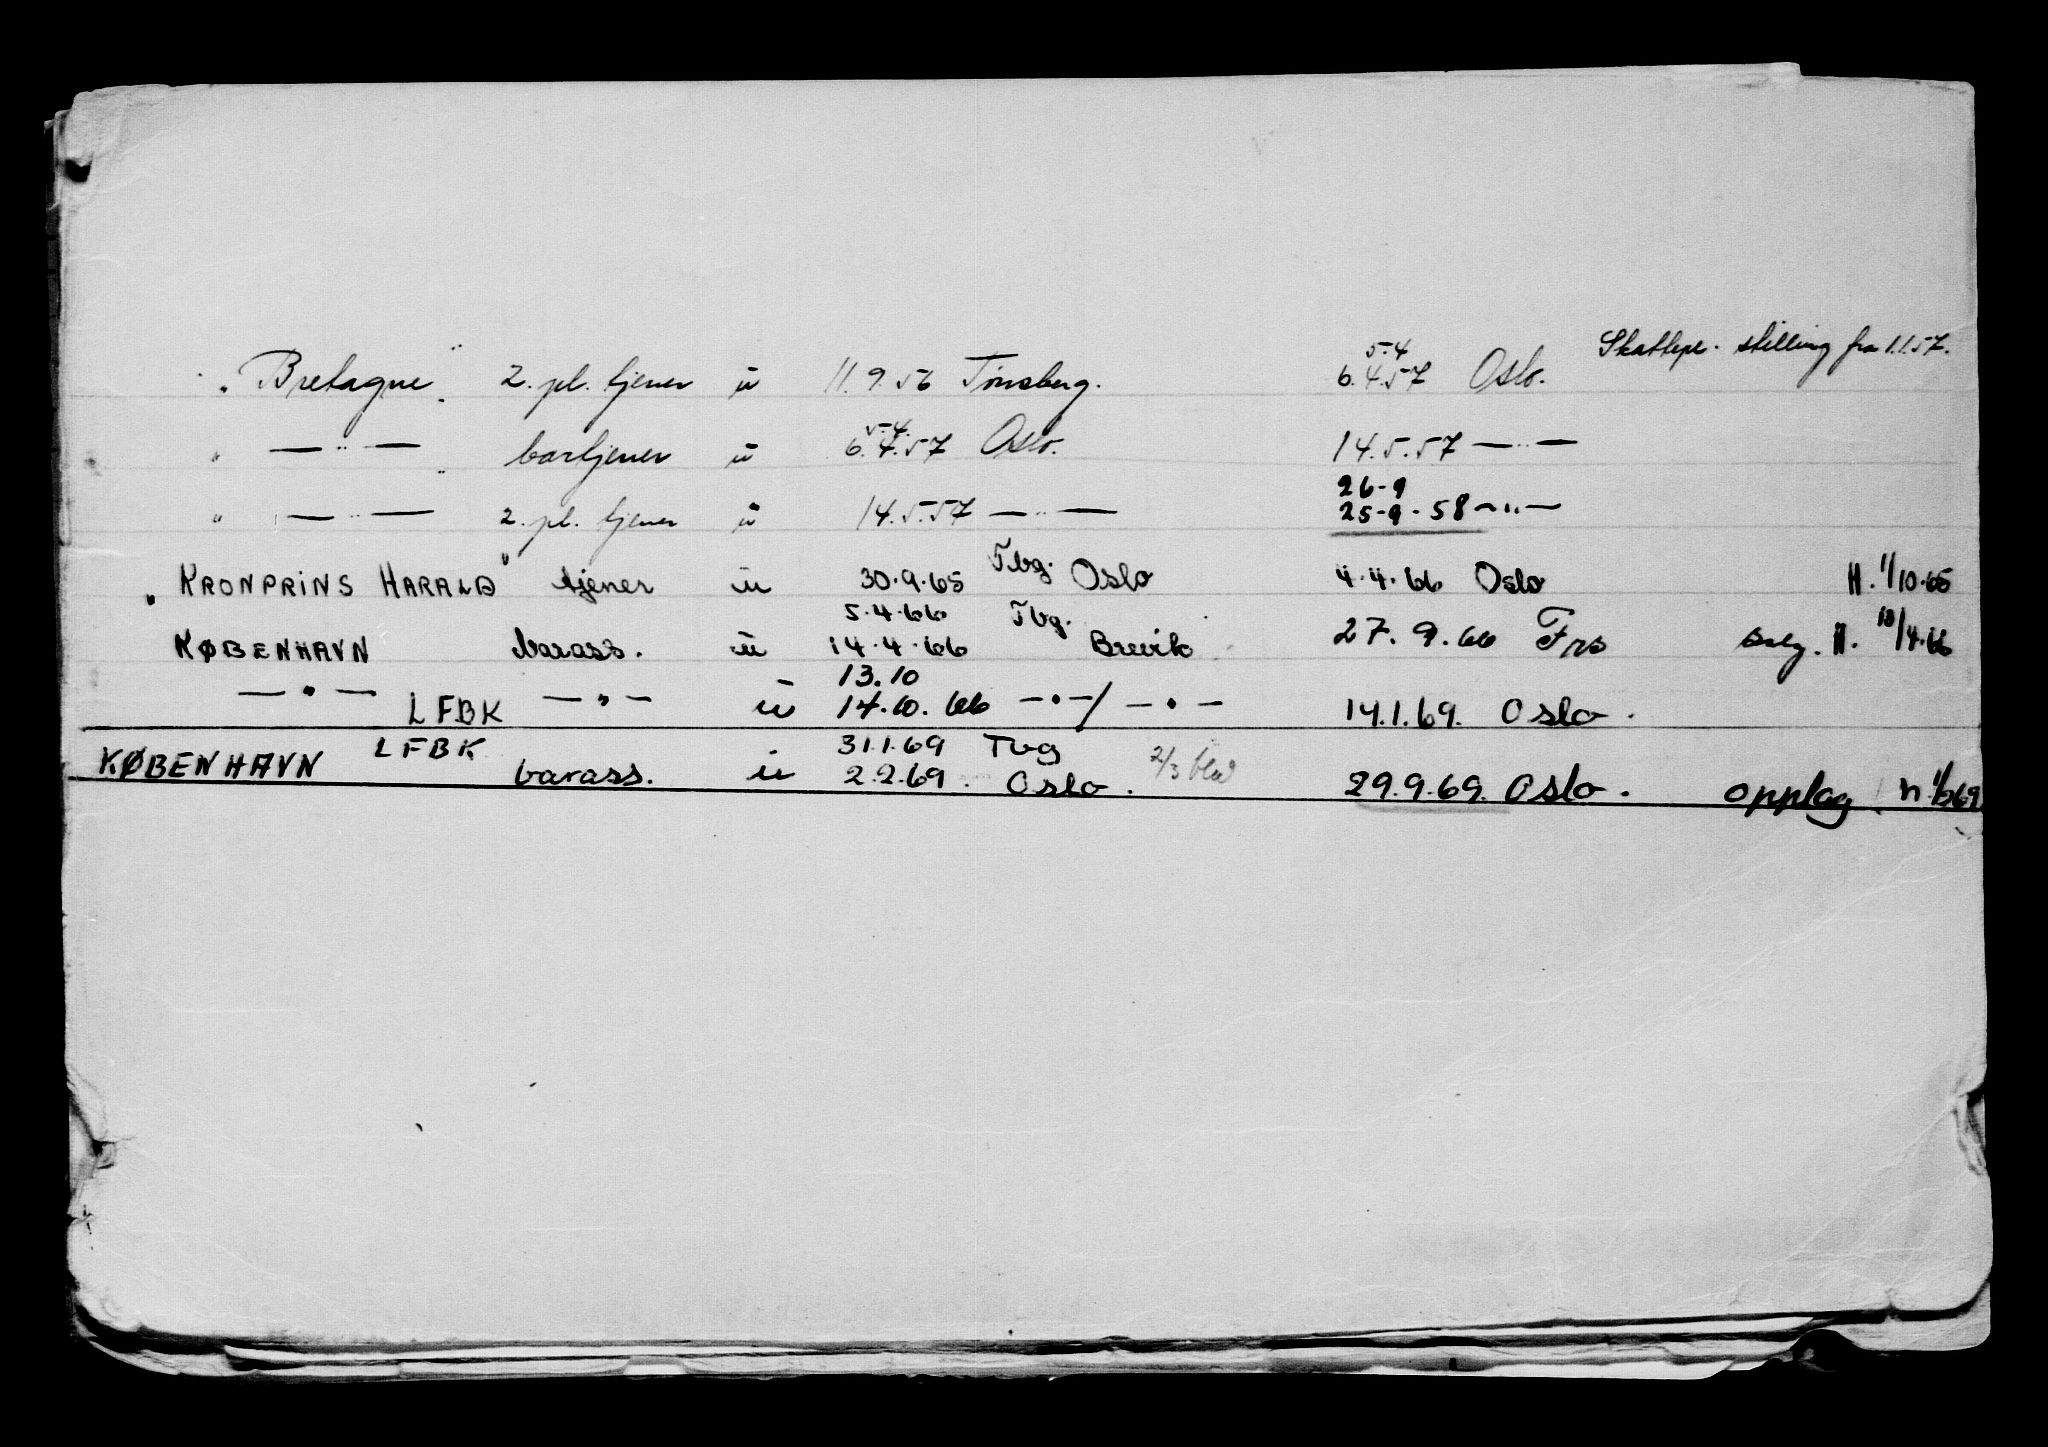 Skattepl. stilling fra 1.1.57.
5-4
"Bretagne" 2. pl. tjener u 11.9.56 Tønsberg. 6.4.57 Oslo.
5-4.
" — " — bartjener u 6.4.57 Oslo. 14.5.57 — " —
26-9
" — " — 2. pl. tjener u 14.5.57 — " — 25-9-58 — " —
"KRONPRINS HARALD" tjener u 30.9.65 Tbg. Oslo 4.4.66 Oslo H. 1/10.65
5.4.66 Tbg.
KØBENHAVN barass. u 14.4.66 Brevik 27.9.66 Fro H. 13/4.66
13.10
— " — LFBK — " — u 14.10.66 — " — / — " — 14.1.69. Oslo.
31.1.69 Tbg
KØBENHAVN LFBK barass. u 2.2.69. Oslo. 2/3 29.9.69. Oslo. opplag